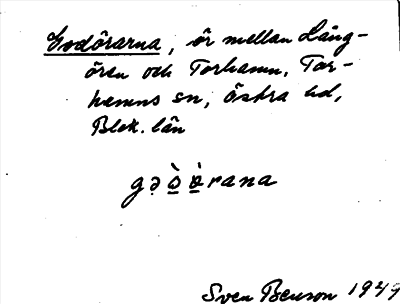 Godörarna, ör mellan Lång-
ören och Torhamn, Tor-
hamns sn, östra hd,
Blek. län
gə̣ò̱ò̱rana
Sven Benson 1949